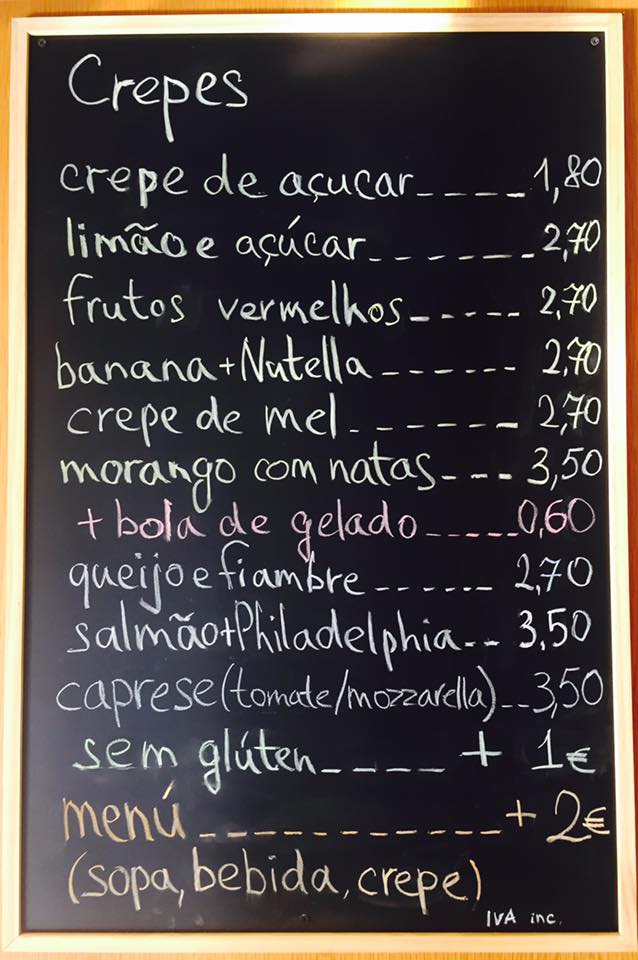 Crepes
crepe de açucar_____1,80
limão e açúcar_______2,70
frutos vermelhos_____2,70
banana+Nutella______2,70
crepe de mel_______2,70
morango com natas___3,50
+ bola de gelado_____0,60
queijo e fiambre______2,70
salmão+Philadelphia__3,50
caprese(tomate/mozzarella)__3,50
sem glúten____ + 1€
menú___________+ 2€
(sopa, bebida, crepe)
IVA inc.